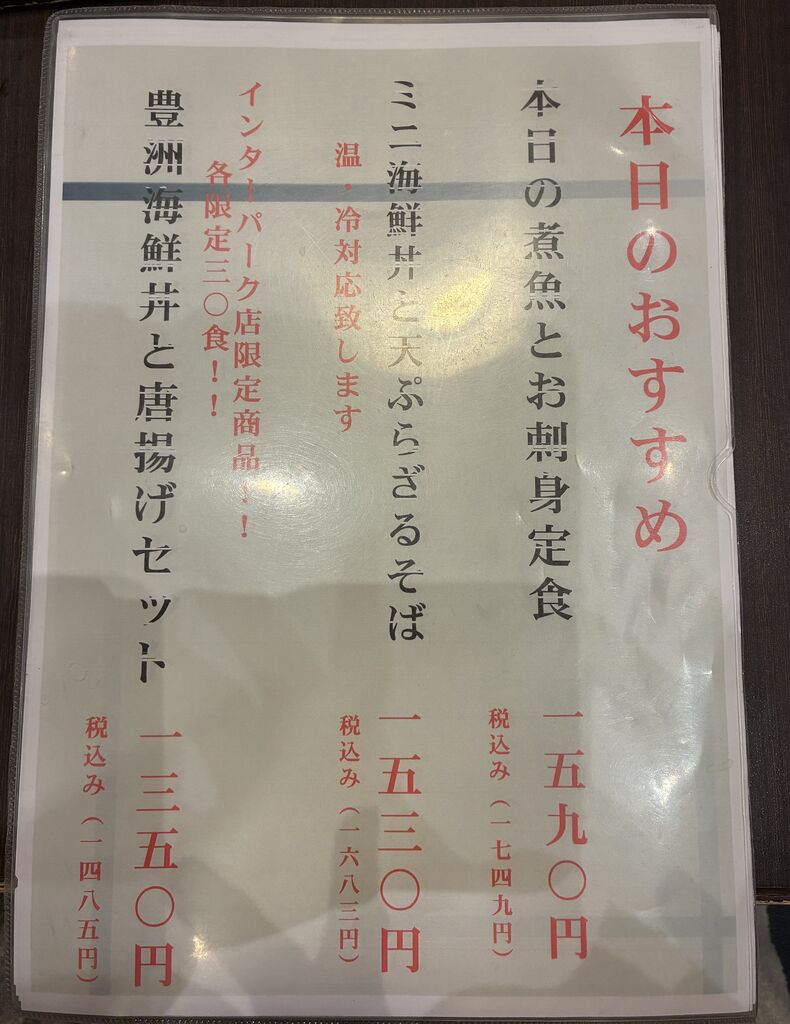 本日のおすすめ
本日の煮魚とお刺身定食
一五九〇円
税込み（一七四九円）
ミニ海鮮丼と天ぷらざるそば
一五三〇円
温・冷対応致します
税込み（一六八三円）
インターパーク店限定商品！！
各限定三〇食！！
豊洲海鮮丼と唐揚げセット
一三五〇円
税込み（一四八五円）